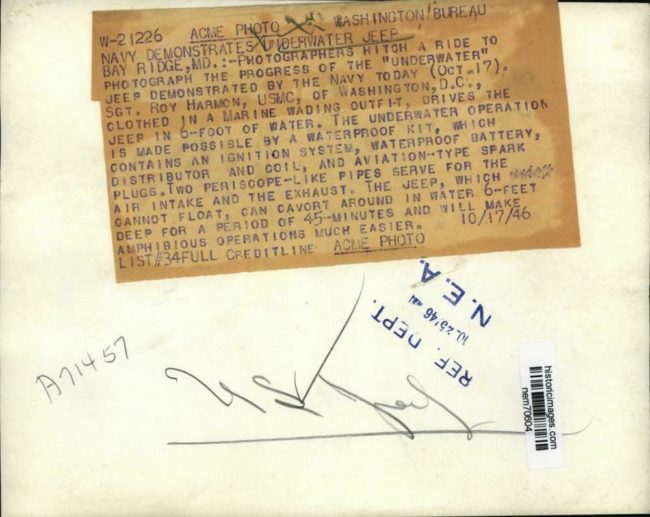 W-21226 ACME PHOTO WASHINGTON BUREAU
NAVY DEMONSTRATES UNDERWATER JEEP
BAY RIDGE, MD.:-PHOTOGRAPHERS HITCH A RIDE TO
PHOTOGRAPH THE PROGRESS OF THE "UNDERWATER"
JEEP DEMONSTRATED BY THE NAVY TODAY (OCT. 17).
SGT. ROY HARMON, USMC, OF WASHINGTON, D.C.,
CLOTHED IN A MARINE WADING OUTFIT, DRIVES THE
JEEP IN 6-FOOT OF WATER. THE UNDERWATER OPERATION
IS MADE POSSIBLE BY A WATERPROOF KIT, WHICH
CONTAINS AN IGNITION SYSTEM, WATERPROOF BATTERY,
DISTRIBUTOR AND COIL, AND AVIATION-TYPE SPARK
PLUGS. TWO PERISCOPE-LIKE PIPES SERVE FOR THE
AIR INTAKE AND THE EXHAUST. THE JEEP, WHICH
CANNOT FLOAT, CAN CAVORT AROUND IN WATER 6-FEET
DEEP FOR A PERIOD OF 45-MINUTES AND WILL MAKE
AMPHIBIOUS OPERATIONS MUCH EASIER. 10/17/46
LIST#34FULL CREDITLINE ACME PHOTO
REF. DEPT.
10 25'46
N.E.A.
A71457
historicimages.com
nem70604